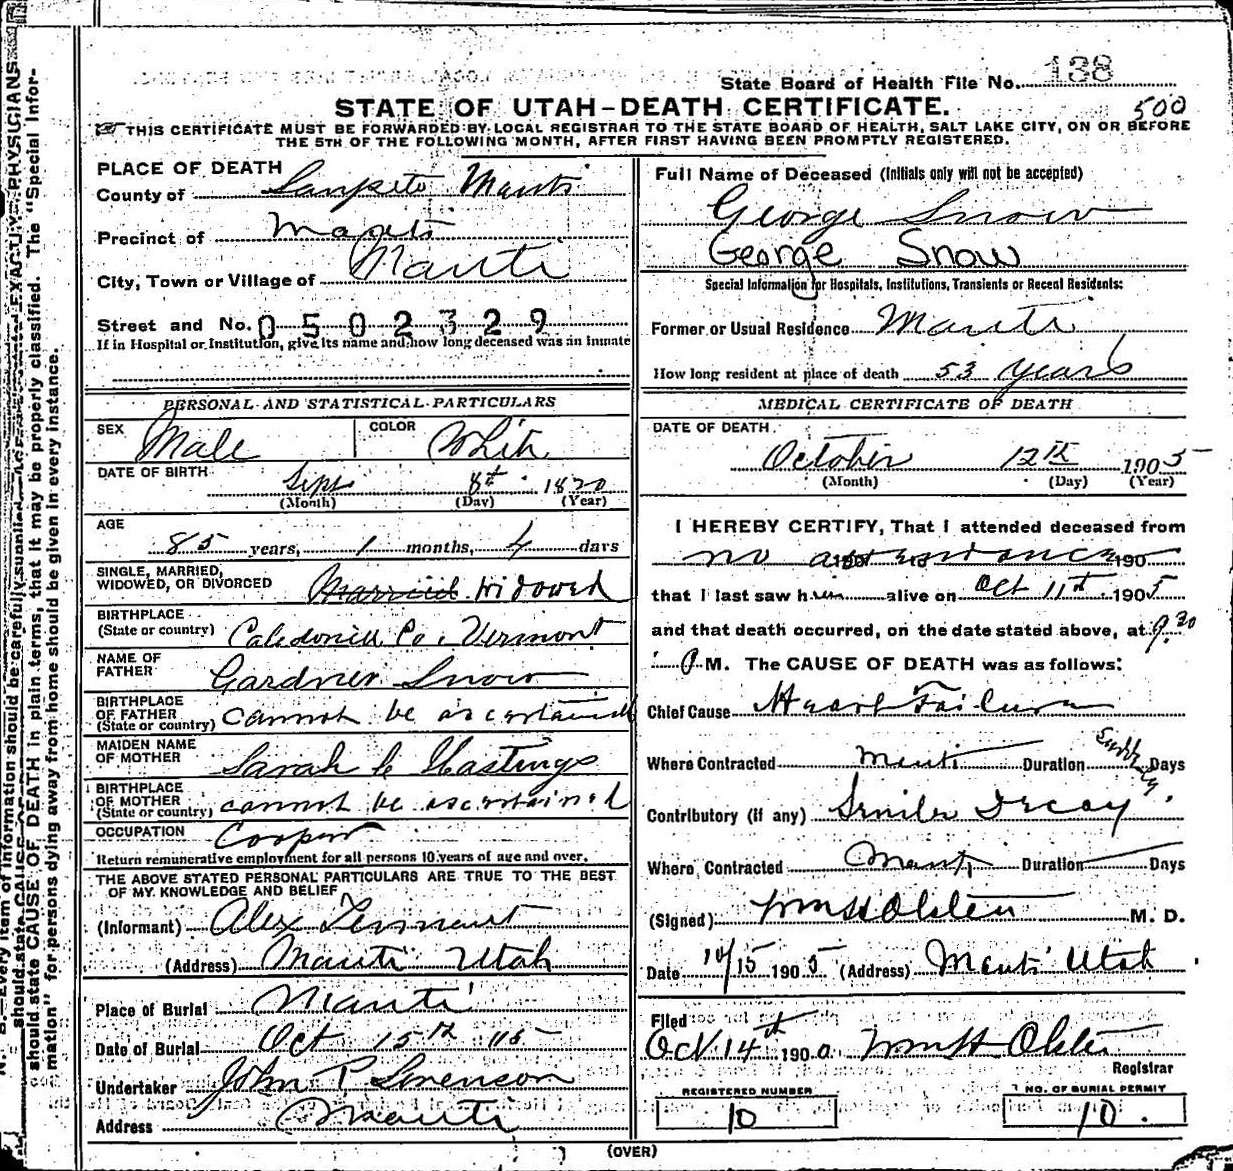 State Board of Health File No. 138
STATE OF UTAH-DEATH CERTIFICATE.
500
THIS CERTIFICATE MUST BE FORWARDED BY LOCAL REGISTRAR TO THE STATE BOARD OF HEALTH, SALT LAKE CITY, ON OR BEFORE
THE 5TH OF THE FOLLOWING MONTH, AFTER FIRST HAVING BEEN PROMPTLY REGISTERED.
PLACE OF DEATH
County of Sanpete Manti
Precinct of Manti
City, Town or Village of Manti
Street and No. 0502329
If in Hospital or Institution, give its name and how long deceased was an inmate
PERSONAL AND STATISTICAL PARTICULARS
SEX Male COLOR White
DATE OF BIRTH Sept 8th 1820
(Month) (Day) (Year)
AGE
85 years, 1 months, 4 days
SINGLE, MARRIED,
WIDOWED, OR DIVORCED Married Widowed
BIRTHPLACE
(State or country) Caledonia Co. Vermont
NAME OF
FATHER Gardner Snow
BIRTHPLACE
OF FATHER
(State or country) cannot be ascertained
MAIDEN NAME
OF MOTHER Sarah C Hastings
BIRTHPLACE
OF MOTHER
(State or country) cannot be ascertained
OCCUPATION Cooper
Return remunerative employment for all persons 10 years of age and over.
THE ABOVE STATED PERSONAL PARTICULARS ARE TRUE TO THE BEST
OF MY KNOWLEDGE AND BELIEF
(Informant) Alex Tennant
(Address) Manti Utah
Place of Burial Manti
Date of Burial Oct 15th 05
Undertaker John P Sorenson
Address Manti
Full Name of Deceased (Initials only will not be accepted)
George Snow
George Snow
Special Information for Hospitals, Institutions, Transients or Recent Residents:
Former or Usual Residence Manti
How long resident at place of death 53 years
MEDICAL CERTIFICATE OF DEATH
DATE OF DEATH
October 12th 1905
(Month) (Day) (Year)
I HEREBY CERTIFY, That I attended deceased from
no attendance 190
that I last saw him alive on Oct 11th 1905
and that death occurred, on the date stated above, at 9.30
P M. The CAUSE OF DEATH was as follows:
Chief Cause Heart Failure
Where Contracted Manti Duration Suddenly Days
Contributory (if any) Senile Decay
Where Contracted Manti Duration Days
(Signed) Wm H Olsten M. D.
Date 10/15 1905 (Address) Manti Utah
Filed
Oct 14th 190 Wm H Olsten
Registrar
REGISTERED NUMBER
10
NO. OF BURIAL PERMIT
10.
(OVER)
should state CAUSE OF DEATH in plain terms, that it may be properly classified. The "Special Infor-
mation" for persons dying away from home should be given in every instance.